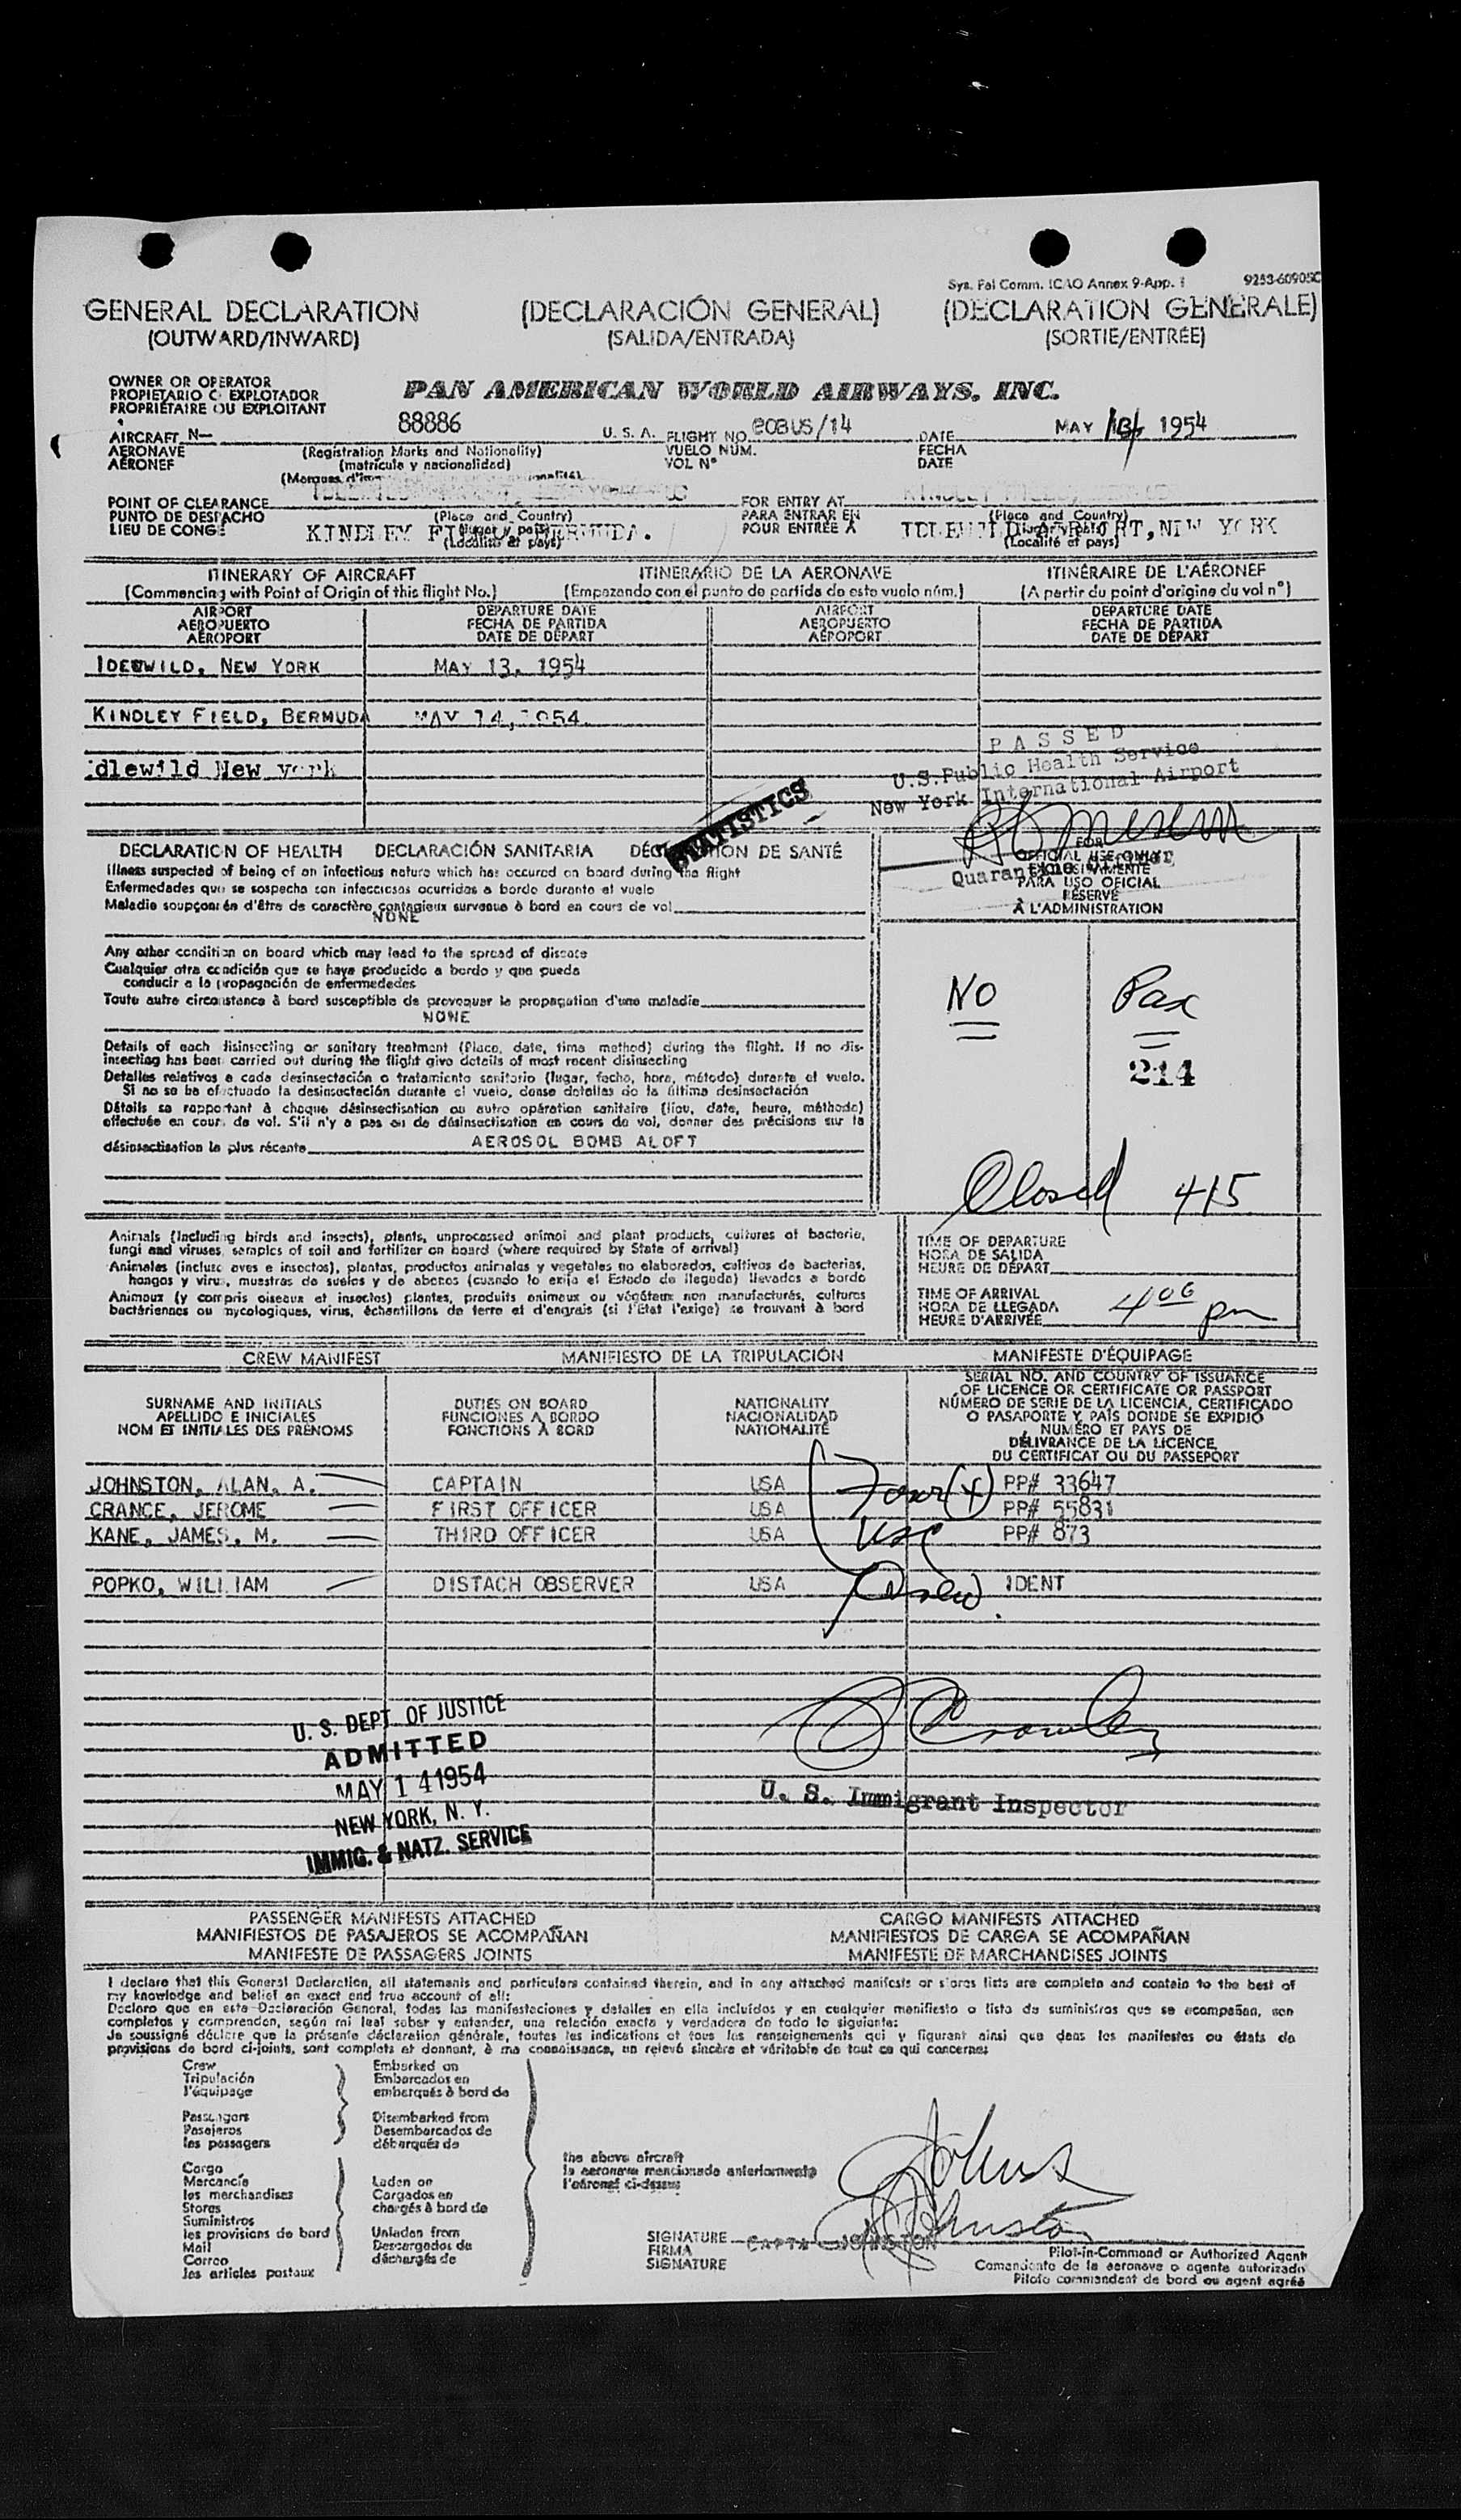 Sys. Pal Comm. ICAO Annex 9-App. 1 9253-60905C
GENERAL DECLARATION (DECLARACIÓN GENERAL) (DECLARATION GENERALE)
(OUTWARD/INWARD) (SALIDA/ENTRADA) (SORTIE/ENTRÉE)
OWNER OR OPERATOR
PROPIETARIO O EXPLOTADOR PAN AMERICAN WORLD AIRWAYS, INC.
PROPRIÉTAIRE OU EXPLOITANT
AIRCRAFT N— 88886 U. S. A. FLIGHT NO. /14 DATE MAY 1954
AERONAVE (Registration Marks and Nationality) VUELO NÚM. FECHA
AÉRONEF (matrícula y nacionalidad) VOL N° DATE
(Marques
POINT OF CLEARANCE FOR ENTRY AT
PUNTO DE DESPACHO (Place and Country) PARA ENTRAR EN (Place and Country)
LIEU DE CONGÉ KINDLEY FIELD, BERMUDA. POUR ENTRÉE À IDLEWILD AIRPORT, NEW YORK
(Localité et pays) (Localité et pays)
ITINERARY OF AIRCRAFT ITINERARIO DE LA AERONAVE ITINÉRAIRE DE L'AÉRONEF
(Commencing with Point of Origin of this flight No.) (Empezando con el punto de partida de este vuelo núm.) (A partir du point d'origine du vol n°)
AIRPORT DEPARTURE DATE AIRPORT DEPARTURE DATE
AEROPUERTO FECHA DE PARTIDA AEROPUERTO FECHA DE PARTIDA
AÉROPORT DATE DE DÉPART AÉROPORT DATE DE DÉPART
IDEEWILD, NEW YORK MAY 13, 1954
KINDLEY FIELD, BERMUDA MAY 14, 1954
PASSED
dlewild New york
U.S.Public Health Service
New York International Airport
STATISTICS
DECLARATION OF HEALTH DECLARACIÓN SANITARIA DÉCLARATION DE SANTÉ
FOR
OFFICIAL USE ONLY
Quarantine
PARA USO OFICIAL
RÉSERVÉ
À L'ADMINISTRATION
Illness suspected of being of an infectious nature which has occured on board during the flight
Enfermedades que se sospecha son infecciosas ocurridas a bordo durante el vuelo
Maladie soupçonnée d'être de caractère contagieux survenue à bord en cours de vol
NONE
Any other condition on board which may lead to the spread of disease
Cualquier otra condición que se haya producido a bordo y que pueda
conducir a la propagación de enfermedades
Toute autre circonstance à bord susceptible de provoquer la propagation d'une maladie
NONE
NO Pax
214
Details of each disinsecting or sanitary treatment (Place, date, time method) during the flight. If no dis-
insecting has been carried out during the flight give details of most recent disinsecting
Detalles relativos a cada desinsectación o tratamiento sanitario (lugar, fecha, hora, método) durante el vuelo.
Si no se ha efectuado la desinsectación durante el vuelo, dense detalles de la última desinsectación
Détails se rapportant à chaque désinsectisation ou autre opération sanitaire (lieu, date, heure, méthode)
effectuée en cours de vol. S'il n'y a pas eu de désinsectisation en cours de vol, donner des précisions sur la
désinsectisation la plus récente AEROSOL BOMB ALOFT
Closed 415
Animals (including birds and insects), plants, unprocessed animal and plant products, cultures of bacteria,
fungi and viruses, samples of soil and fertilizer on board (where required by State of arrival)
Animales (incluso aves e insectos), plantas, productos animales y vegetales no elaborados, cultivos de bacterias,
hongos y virus, muestras de suelos y de abonos (cuando lo exija el Estado de llegada) llevados a bordo
Animaux (y compris oiseaux et insectes) plantes, produits animaux ou végétaux non manufacturés, cultures
bactériennes ou mycologiques, virus, échantillons de terre et d'engrais (si l'État l'exige) se trouvant à bord
TIME OF DEPARTURE
HORA DE SALIDA
HEURE DE DÉPART
TIME OF ARRIVAL
HORA DE LLEGADA
HEURE D'ARRIVÉE 4 06 pm
CREW MANIFEST MANIFIESTO DE LA TRIPULACIÓN MANIFESTE D'ÉQUIPAGE
SURNAME AND INITIALS DUTIES ON BOARD NATIONALITY
APELLIDO E INICIALES FUNCIONES A BORDO NACIONALIDAD
NOM ET INITIALES DES PRÉNOMS FONCTIONS À BORD NATIONALITÉ
SERIAL NO. AND COUNTRY OF ISSUANCE
OF LICENCE OR CERTIFICATE OR PASSPORT
NÚMERO DE SERIE DE LA LICENCIA, CERTIFICADO
O PASAPORTE Y PAÍS DONDE SE EXPIDIÓ
NUMÉRO ET PAYS DE
DÉLIVRANCE DE LA LICENCE,
DU CERTIFICAT OU DU PASSEPORT
JOHNSTON, ALAN. A. CAPTAIN USA Four (4) PP# 33647
CRANCE, JEROME FIRST OFFICER USA PP# 55831
KANE, JAMES. M. THIRD OFFICER USA USC PP# 873
POPKO, WILLIAM DISTACH OBSERVER USA IDENT
U. S. DEPT. OF JUSTICE
ADMITTED
MAY 14 1954
NEW YORK, N. Y.
IMMIG. & NATZ. SERVICE
Crowley
U. S. Immigrant Inspector
PASSENGER MANIFESTS ATTACHED CARGO MANIFESTS ATTACHED
MANIFIESTOS DE PASAJEROS SE ACOMPAÑAN MANIFIESTOS DE CARGA SE ACOMPAÑAN
MANIFESTE DE PASSAGERS JOINTS MANIFESTE DE MARCHANDISES JOINTS
I declare that this General Declaration, all statements and particulars contained therein, and in any attached manifests or stores lists are complete and contain to the best of
my knowledge and belief an exact and true account of all:
Declaro que en esta Declaración General, todas las manifestaciones y detalles en ella incluídos y en cualquier manifiesto o lista de suministros que se acompañan, son
completos y comprenden, según mi leal saber y entender, una relación exacta y verdadera de todo lo siguiente:
Je soussigné déclare que la présente déclaration générale, toutes les indications et tous les renseignements qui y figurent ainsi que dans les manifestes ou états de
provisions de bord ci-joints, sont complets et donnent, à ma connaissance, un relevé sincère et véritable de tout ce qui concerne:
Crew Embarked on
Tripulación Embarcados en
l'équipage embarqués à bord de
Passengers Disembarked from
Pasajeros Desembarcados de
les passagers débarqués de
the above aircraft
la aeronave mencionada anteriormente
l'aéronef ci-dessus
Cargo
Mercancía Laden on
les merchandises Cargados en
Stores chargés à bord de
Suministros
les provisions de bord Unladen from
Mail Descargados de
Correo déchargés de
les articles postaux
SIGNATURE CAPTA JOHNSTON
FIRMA
SIGNATURE
Pilot-in-Command or Authorized Agent
Comandante de la aeronave o agente autorizado
Pilote commandant de bord ou agent agréé